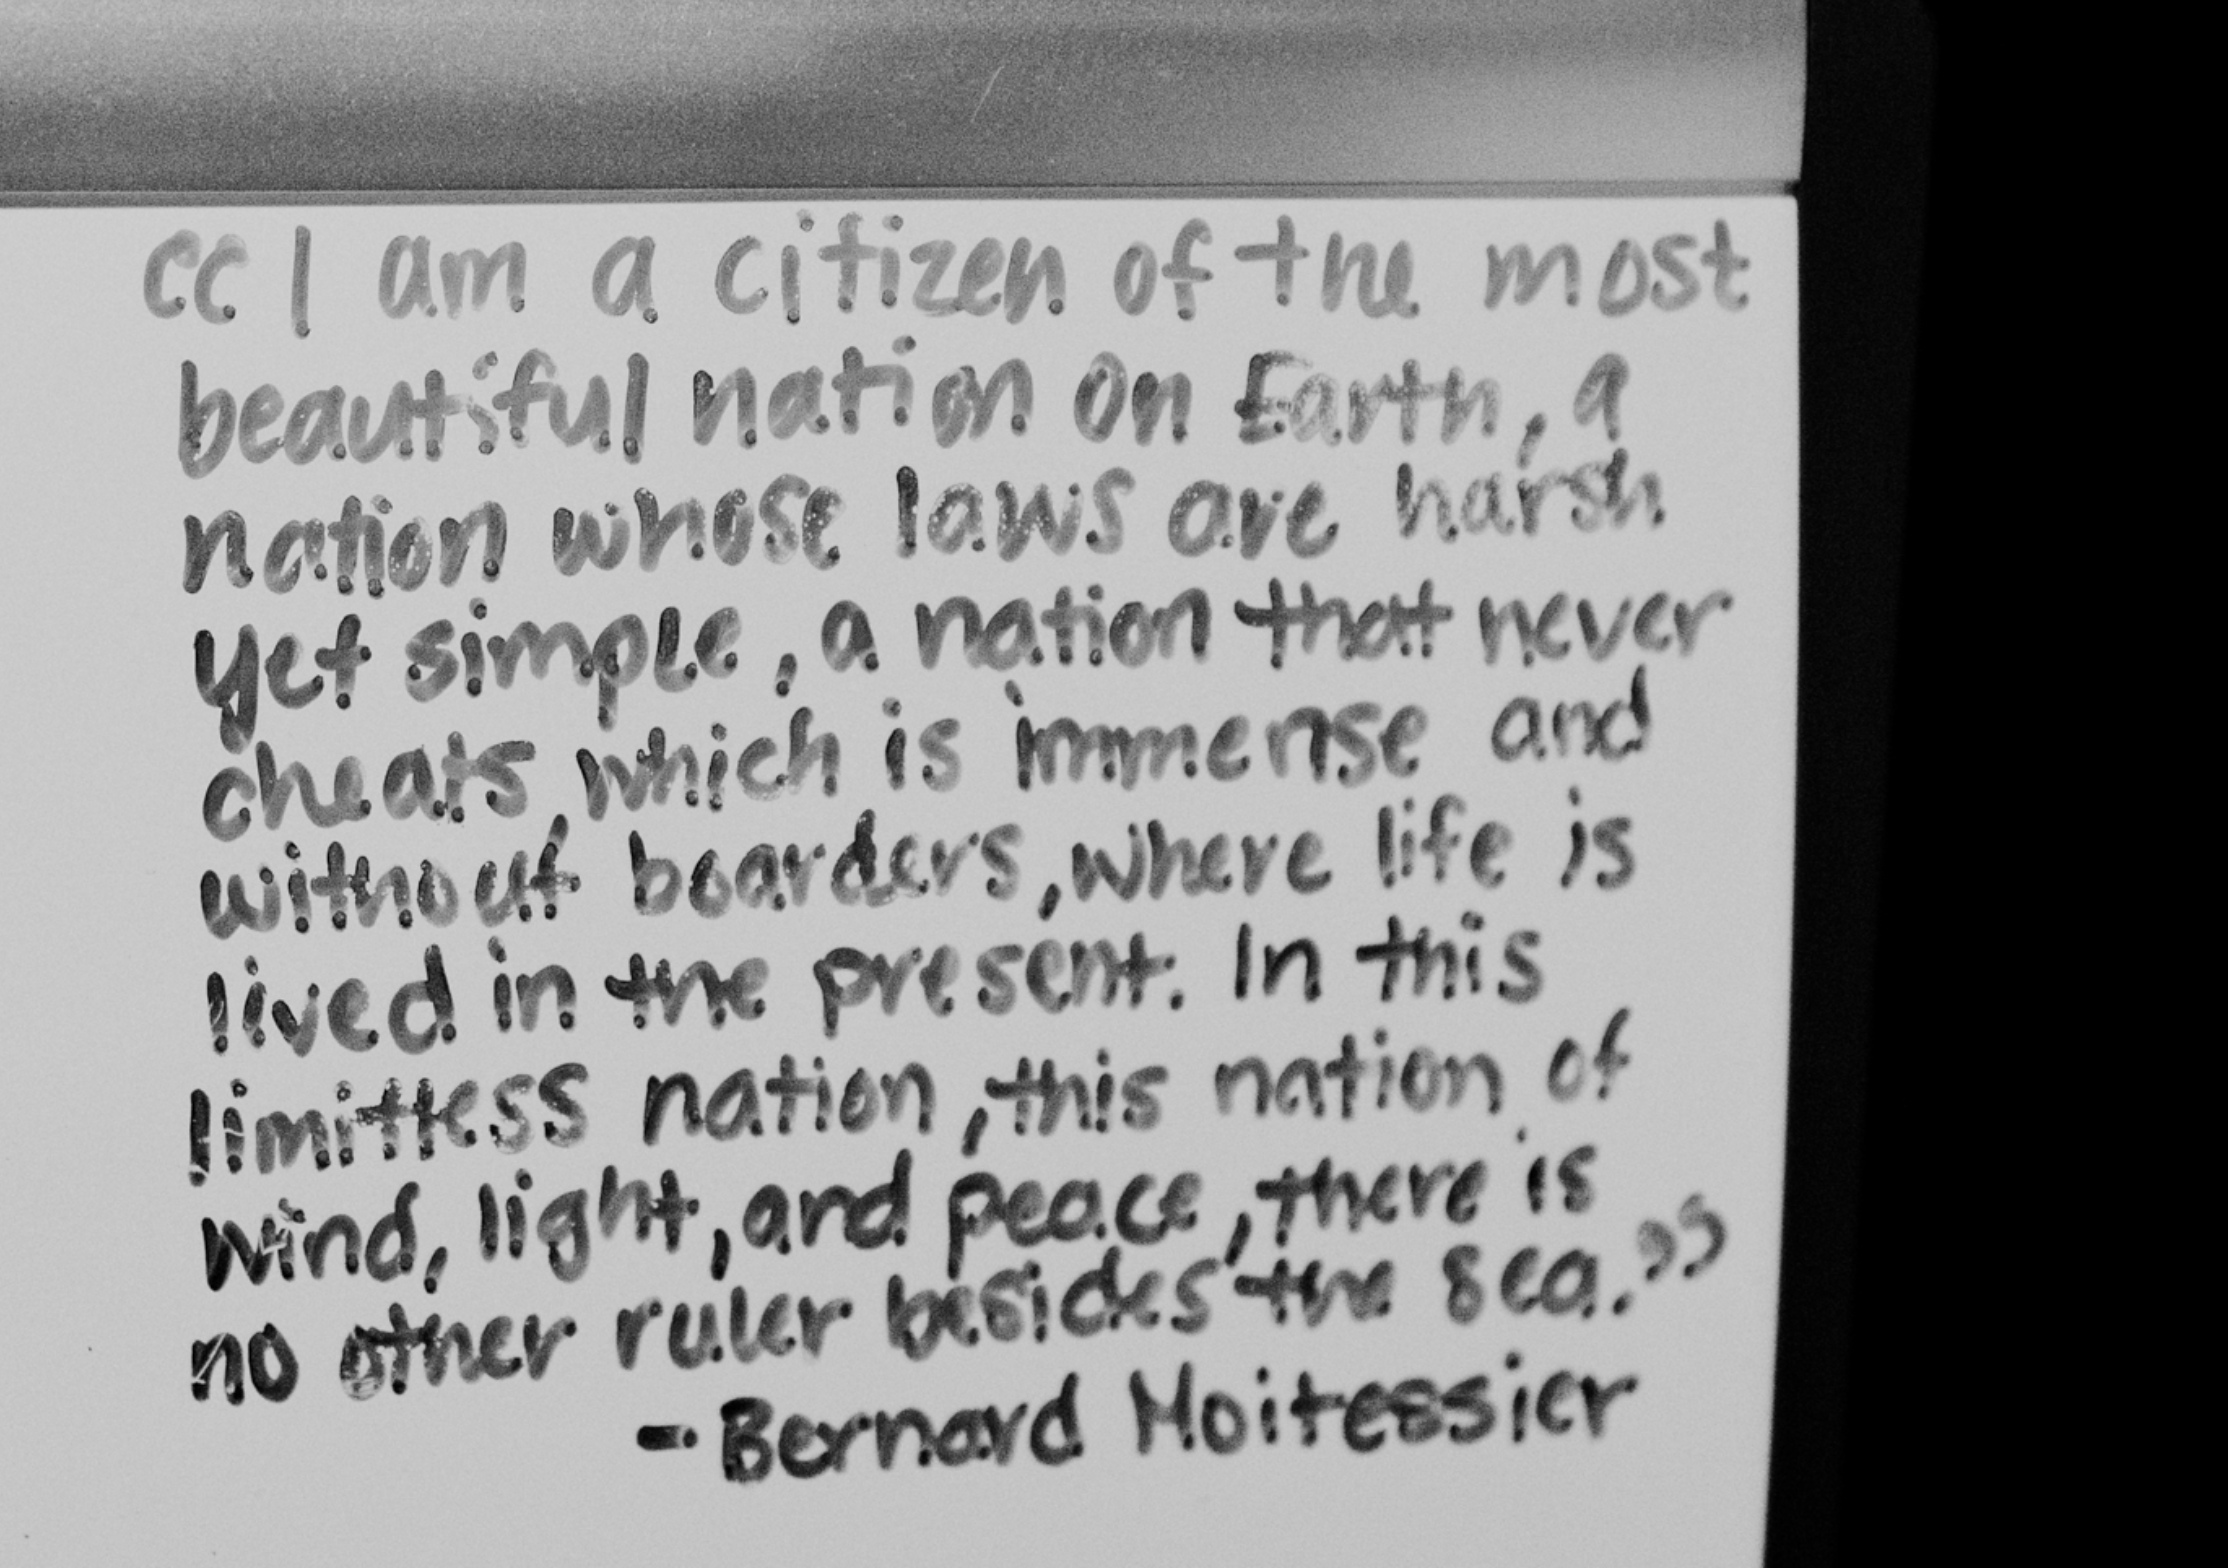 “I am a citizen of the most
beautiful nation on Earth, a
nation whose laws are harsh
yet simple, a nation that never
cheats, which is immense and
without boarders, where life is
lived in the present. In this
limitless nation, this nation of
wind, light, and peace, there is
no other ruler besides the sea.”
- Bernard Moitessier